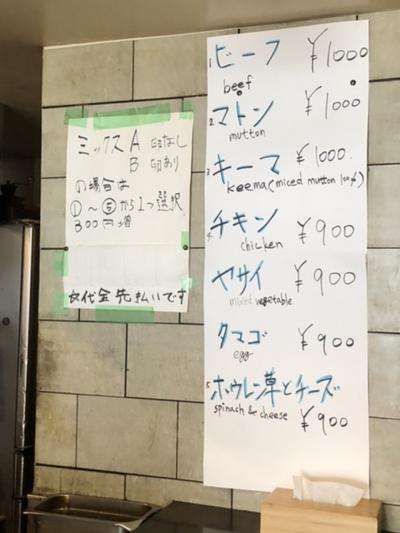 ミックス A 卵なし
B 卵あり
の場合は
①〜⑤から1つ選択
300円増
代金先払いです
1 ビーフ ¥1000
beef
2 マトン ¥1000
mutton
3 キーマ ¥1000.
keema (miced mutton 100%)
4 チキン ¥900
chicken
ヤサイ ¥900
mixed vegetable
タマゴ ¥900
egg
5 ホウレン草とチーズ
spinach & cheese ¥900